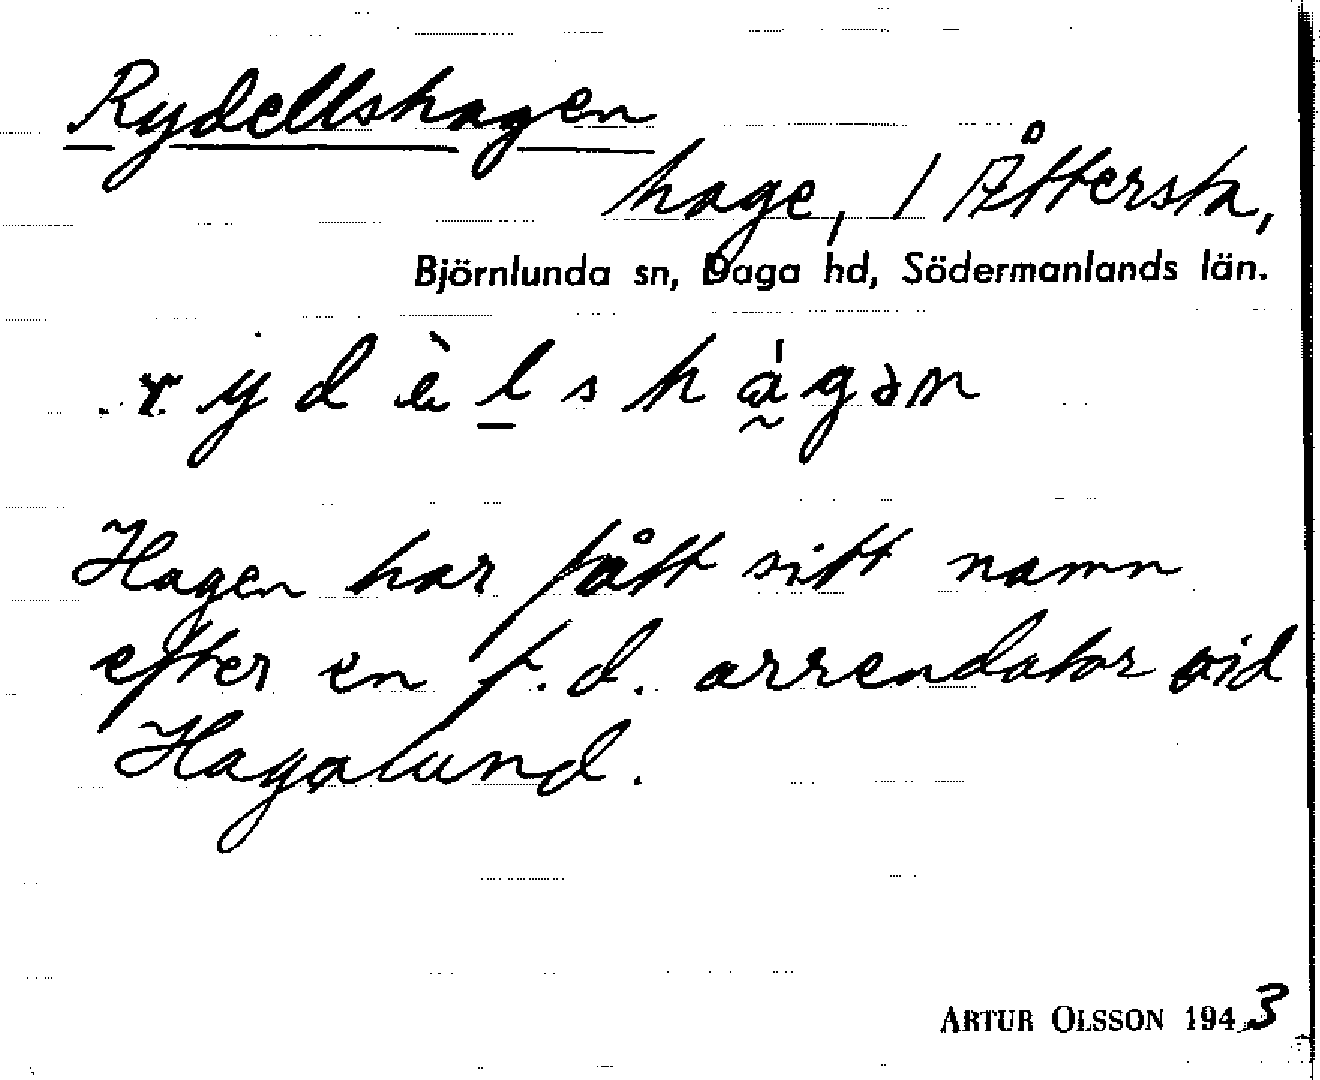 Rydellshagen
hage, 1 Åttersta,
Björnlunda sn, Daga hd, Södermanlands län.
r y d è l s h á g ə n
Hagen har fått sitt namn
efter en f.d. arrendator vid
Hagalund.
ARTUR OLSSON 1943